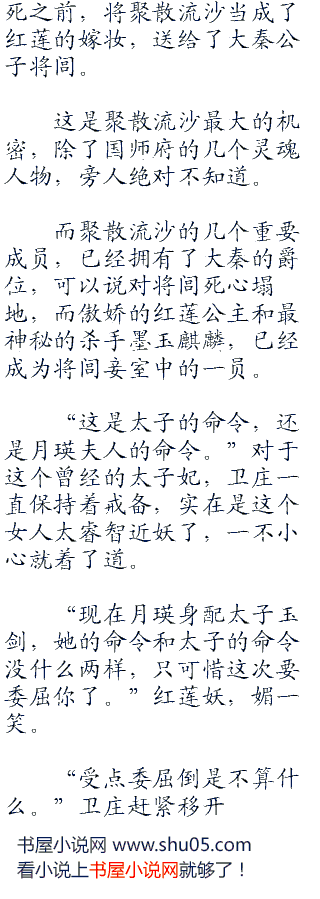 死之前，将聚散流沙当成了
红莲的嫁妆，送给了大秦公
子将闾。
这是聚散流沙最大的机
密，除了国师府的几个灵魂
人物，旁人绝对不知道。
而聚散流沙的几个重要
成员，已经拥有了大秦的爵
位，可以说对将闾死心塌
地，而傲娇的红莲公主和最
神秘的杀手墨玉麒麟，已经
成为将闾妾室中的一员。
“这是太子的命令，还
是月瑛夫人的命令。”对于
这个曾经的太子妃，卫庄一
直保持着戒备，实在是这个
女人太睿智近妖了，一不小
心就着了道。
“现在月瑛身配太子玉
剑，她的命令和太子的命令
没什么两样，只可惜这次要
委屈你了。”红莲妖，媚一
笑。
“受点委屈倒是不算什
么。”卫庄赶紧移开
书屋小说网 www.shu05.com
看小说上书屋小说网就够了！